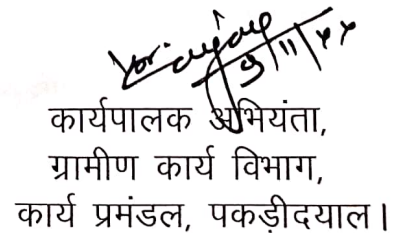 कार्यपालक अभियंता,
ग्रामीण कार्य विभाग,
कार्य प्रमंडल, पकड़ीदयाल।